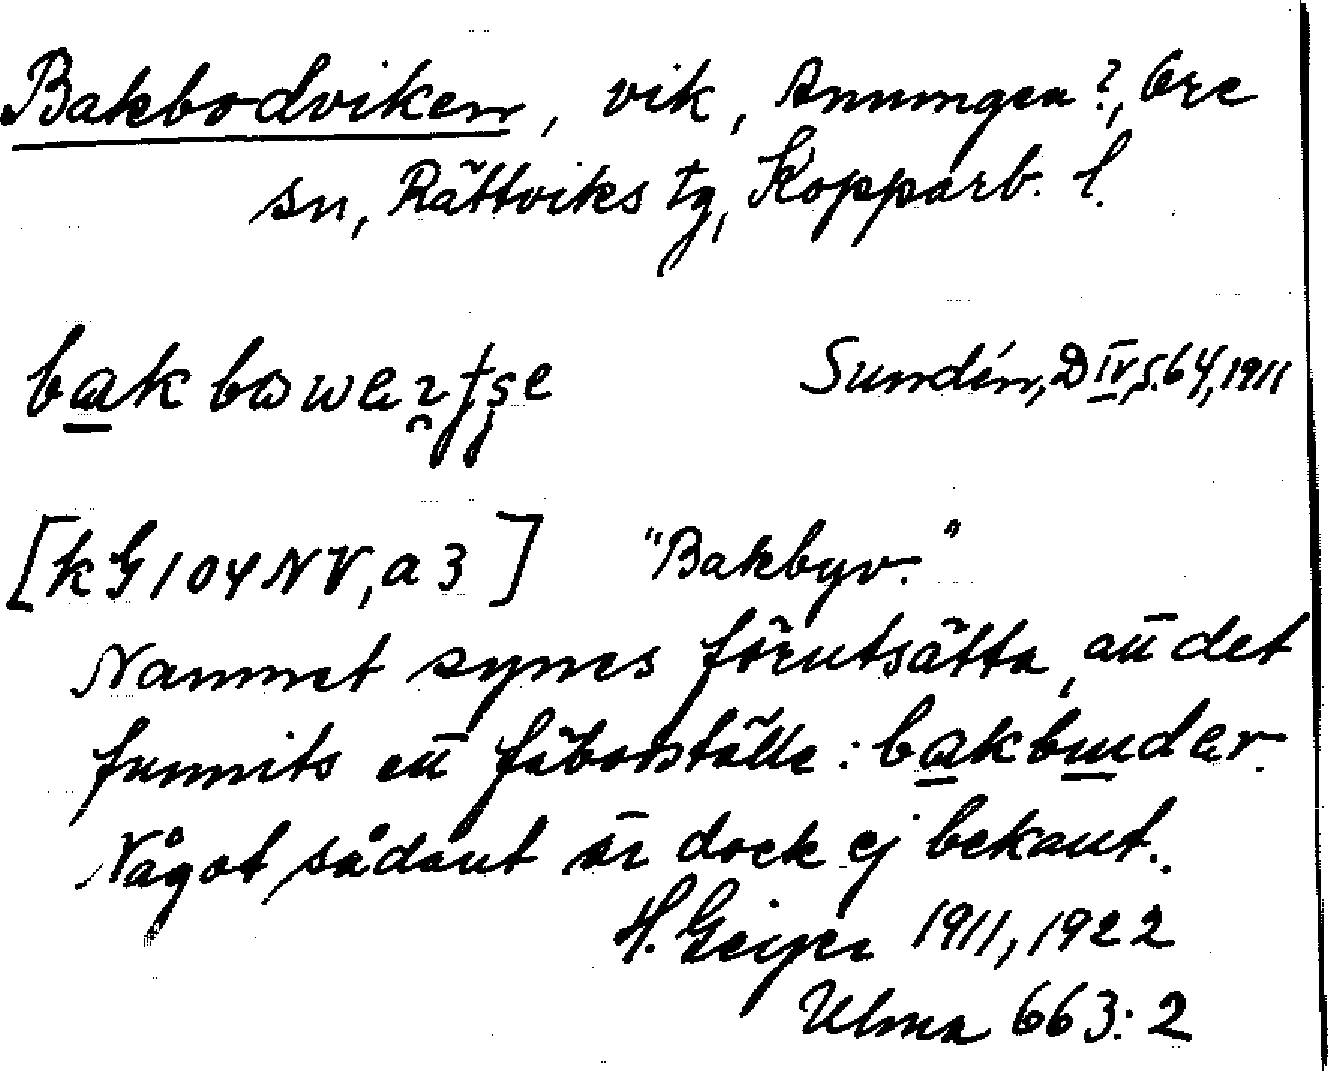 Bakbodviken, vik, Amungen?, Ore
sn, Rättviks tg, Kopparb. l.
Sundén, D IV, S. 64, 1911
[kG 104 NV, a 3] "Bakbyv."
Namnet synes förutsätta, att det
funnits ett fäbodställe: bakbuder.
Något sådant är dock ej bekant.
H. Geijer 1911, 1922
Ulma 663:2